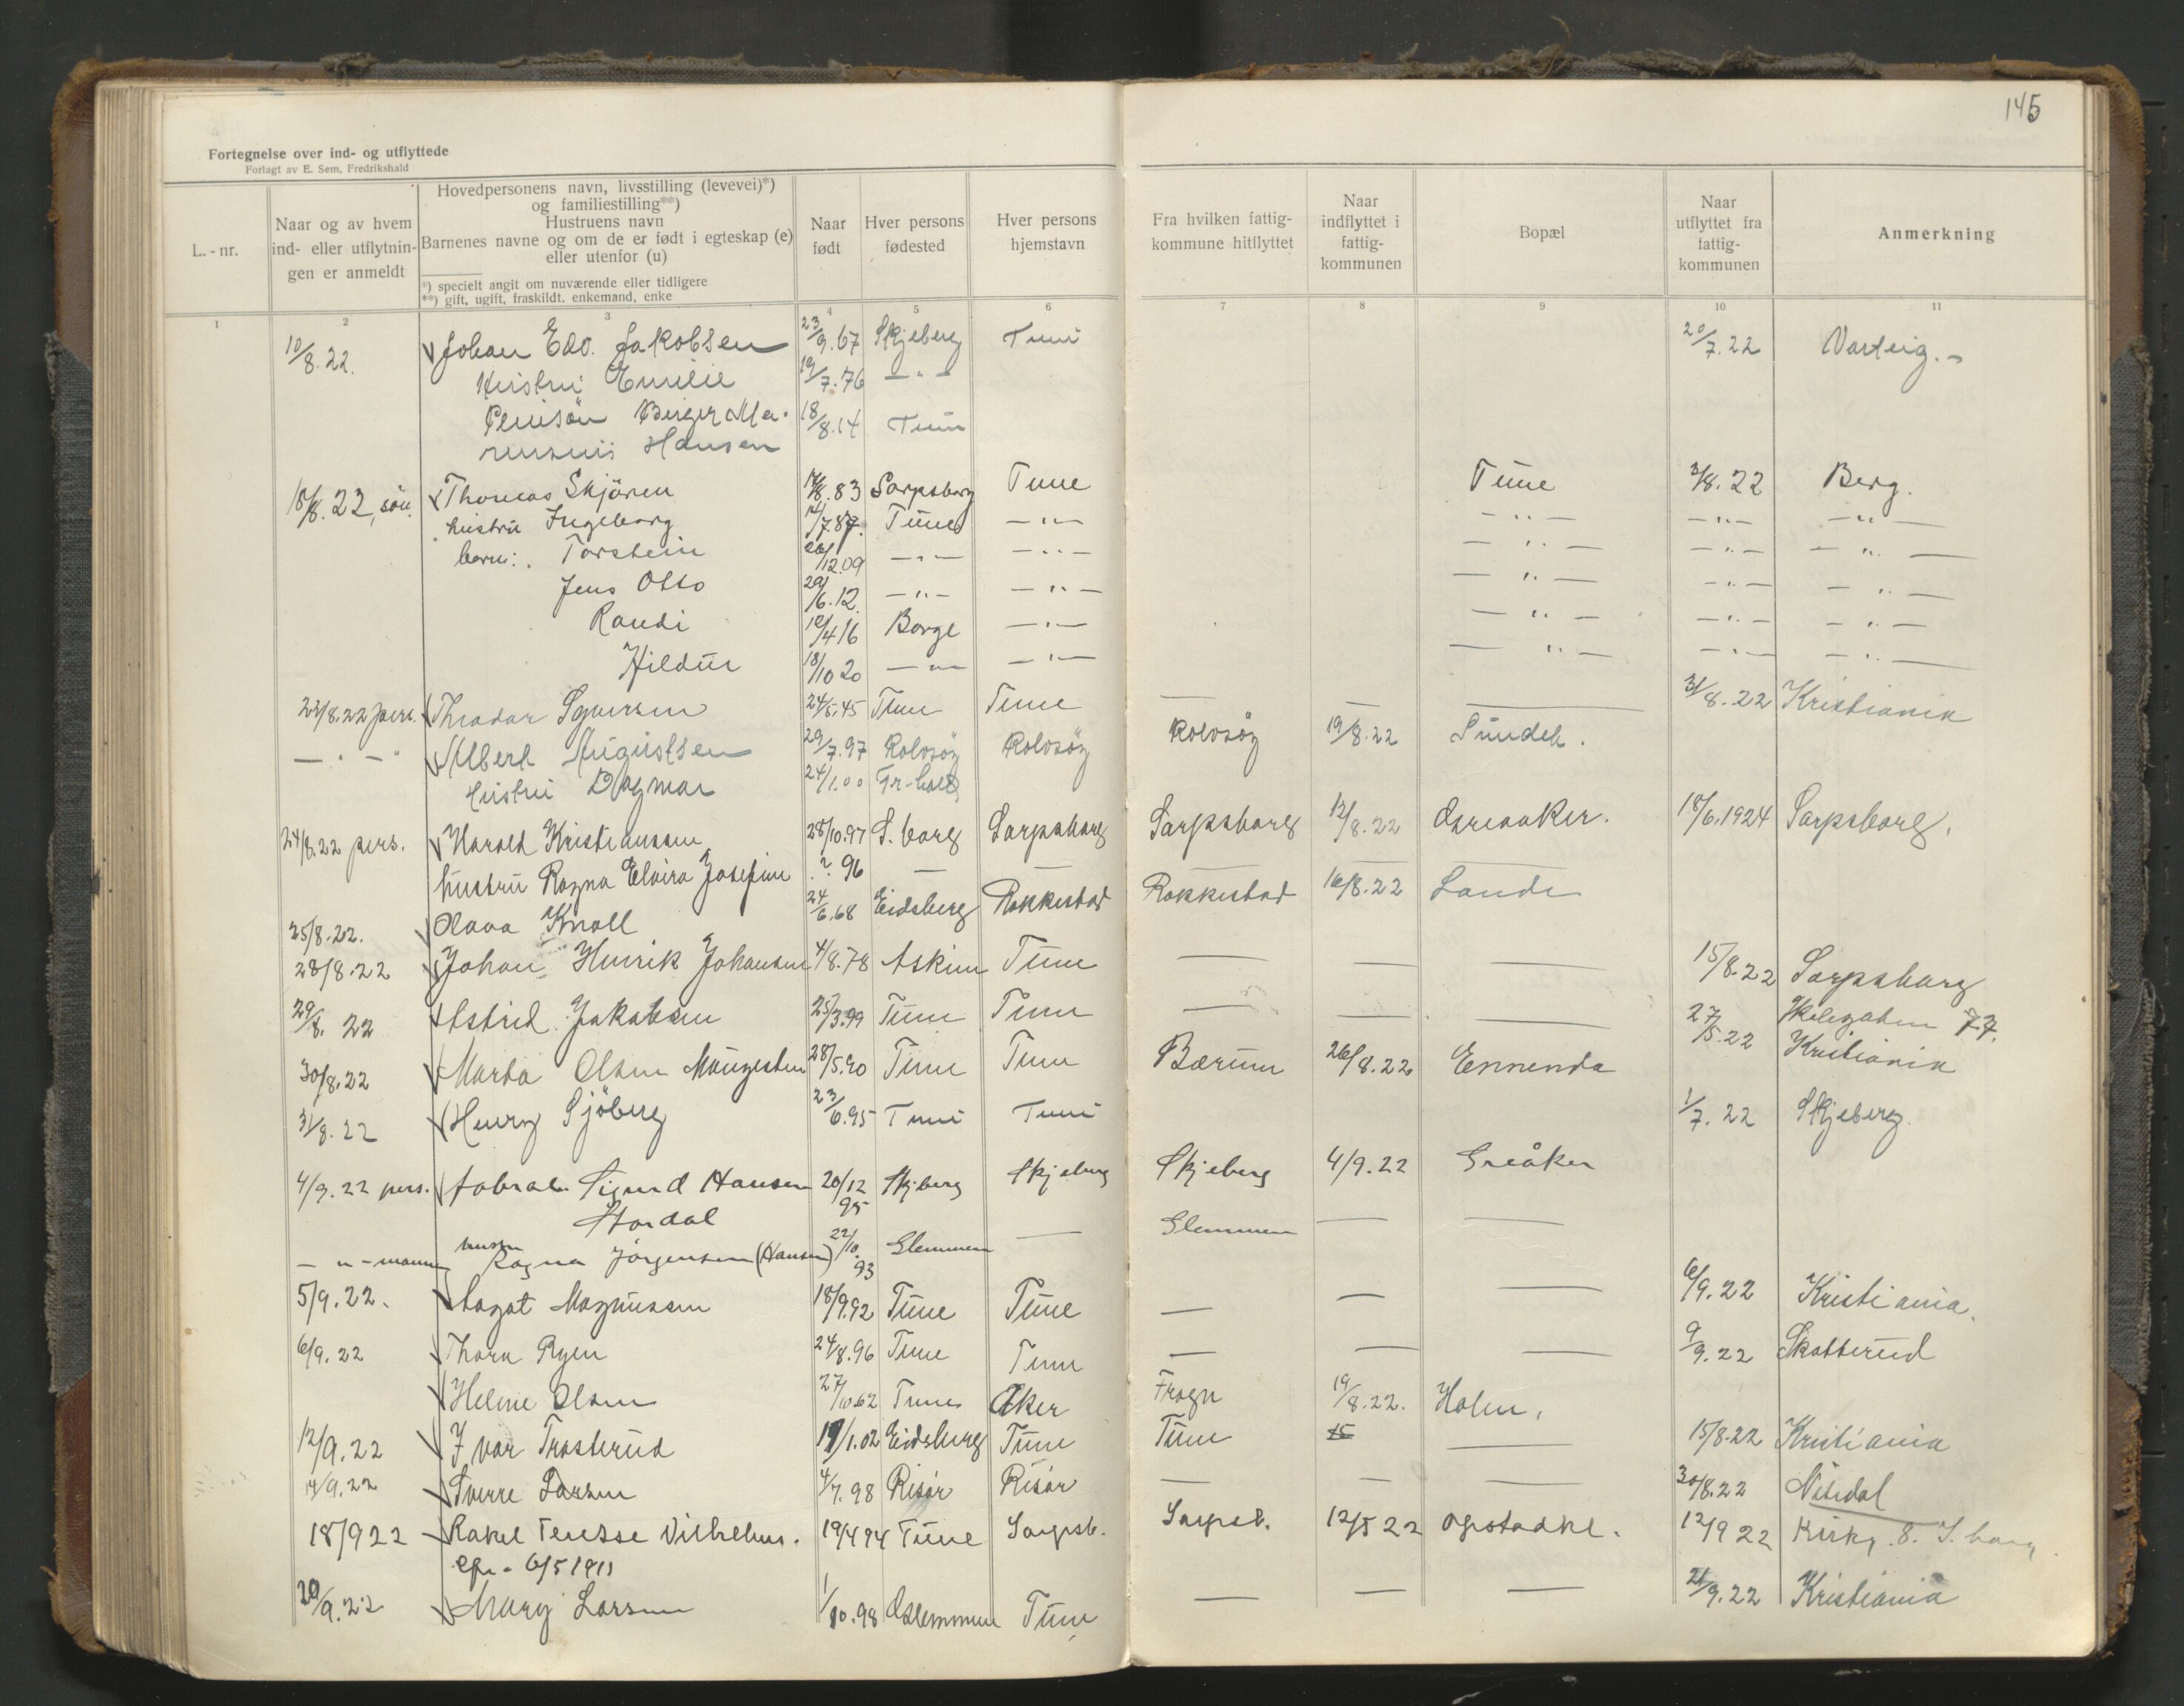 145
Fortegnelse over ind- og utflyttede
Forlagt av E. Sem, Fredrikshald
L.-nr.
Naar og av hvem ind- eller utflytnin- gen er anmeldt
Hovedpersonens navn, livsstilling (levevei)*)
og familiestilling**)
Hustruens navn
Barnenes navne og om de er født i egteskap (e)
eller utenfor (u)
*) specielt angit om nuværende eller tidligere
**) gift, ugift, fraskildt. enkemand, enke
Naar født
Hver persons fødested
Hver persons hjemstavn
Fra hvilken fattig- kommune hitflyttet
Naar indflyttet i fattig- kommunen
Bopæl
Naar utflyttet fra fattig- kommunen
Anmerkning
1 2 3 4 5 6 7 8 9 10 11
10/8.22. Johan Edv. Jakobsen 23/9.67 Skjeberg Tune 20/7.22 Varteig.
Hustru Emilie 19/7.76 — " —
Pleiesön Birger Ma- 18/8.14 Tune
Hansen
18/8.22, sön. Thomas Skjören 17/8.83 Sarpsborg Tune Tüne 3/8.22 Berg.
hustrü Ingeborg 14/7.87. Tüne — " — — " — — " — — " —
barn: Torstein 26/12.09 — " — — " — — " — — " — — " —
Jens Otto 29/6.12. — " — — " — — " — — " — — " —
Randi 12/4 16 Borge — " — — " — — " — — " —
Hildür 18/10 20 — " — — " — — " — — " — — " —
22/8.22 pers. Theodor Syversen 24/5.45 Tune Tune — — — 31/8.22 Kristiania
— " — " Albert Augüstsen 29/7.97 Rolvsöy Rolvsöy Rolvsöy 19/8.22 Sündek.
Hustru Dagmar 24/1.00 Fr-hald
24/8.22 pers. Harald Kristianssen 28/10.97 S.borg Sarpsborg Sarpsborg 12/8.22 Greaaker. 18/6.1924 Sarpsborg.
hüstrü Ragna Elvira Josefine ? 96 — — — — —
25/8.22. Olava Knoll 24/6.68 Eidsberg Rakkestad Rakkestad 16/8.22 Lande
28/8.22 Johan Henrik Johansen 4/8.78 Askim Tüne — — — 15/8.22 Sarpsborg
29/8.22 Astrid Jakobsen 25/3.99 Tüne Tune — — — 27/5.22 77.
Kristiania
30/8.22 Marta Olsen 28/5.90 Tüne Tune Bærum 26/8.22 Ennenda
31/8.22 Henry Sjöberg 23/6.95 Tune Tune 1/7.22 Skjeberg.
4/9.22 pers. Sigurd Hansen 20/12 95 Skjeberg Skjeberg Skjeberg 4/9.22 Greåker
Stordal
— " — mannen hustru Ragna Jörgensen (Hansen) 22/10. 93 Glemmen — Glemmen — —
5/9.22. Aagot Magnüssen 18/9.92 Tüne Tüne — — — 6/9.22 Kristiania.
6/9.22 Thora Ryen 24/8.96 Tune Tune — — — 9/9.22 Skotterüd
Helene Olsen 27/10.62 Tune Aker Frogn 19/8.22. Holm.
12/9.22 Ivar Trosterüd 19/1.02 Eidsberg Tüne Tüne 15 — 15/8.22 Kristiania
14/9.22 Sverre Larsen 4/7.98 Risör Risör — — — 30/8.22 Nitedal
18/9 22 Rakel Terésse Vilhelms. 19/4 94 Tüne Sarpsb. Sarpsb. 12/5 22 Opstadkl. 12/9 22 Kirkg. 8. S.borg.
6/5 1911
20/9.22 Mary Larsen 1/10.98 Glemmen Tüne — — — 21/9.22 Kristiania